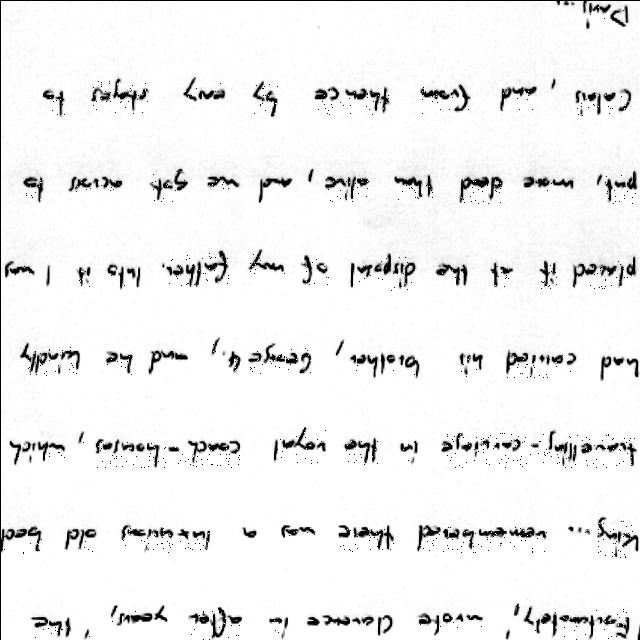 Fortunately', wrote Clarence in after years, 'the
King... remembered there was a luxurious old bed
travelling-carriage in the royal coach-houses, which
had carried his brother, George 4., and he kindly
placed it at the disposal of my father. Into it I was
put, more dead than alive, and we got across to
Calais, and from thence by easy stages to
Paris...